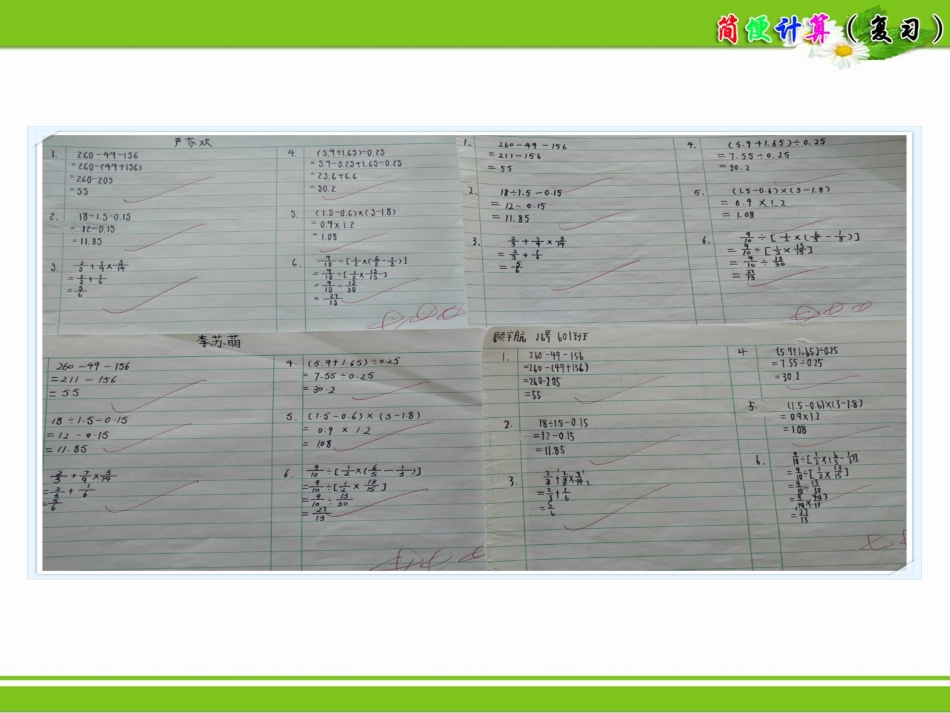 简便计算（复习）
1. 260-49-156
=260-(49+156)
=260-205
=55
2. 18÷1.5-0.15
=12-0.15
=11.85
3. 2/3+7/9×3/14
=2/3+1/6
=5/6
4. (5.9+1.65)÷0.25
=5.9÷0.25+1.65÷0.25
=23.6+6.6
=30.2
5. (1.5-0.6)×(3-1.8)
=0.9×1.2
=1.08
6. 9/10÷[1/2×(6/5-1/3)]
=9/10÷[1/2×13/15]
=9/10÷13/30
=27/13
1. 260-49-156
=211-156
=55
2. 18÷1.5-0.15
=12-0.15
=11.85
3. 2/3+7/9×3/14
=2/3+1/6
=5/6
4. (5.9+1.65)÷0.25
=7.55÷0.25
=30.2
5. (1.5-0.6)×(3-1.8)
=0.9×1.2
=1.08
6. 9/10÷[1/2×(6/5-1/3)]
=9/10÷[1/2×13/15]
=9/10÷13/30
=27/13
李苏萌
260-49-156
=211-156
=55
18÷1.5-0.15
=12-0.15
=11.85
2/3+7/9×3/14
=2/3+1/6
=5/6
4. (5.9+1.65)÷0.25
=7.55÷0.25
=30.2
5. (1.5-0.6)×(3-1.8)
=0.9×1.2
=1.08
6. 9/10÷[1/2×(6/5-1/3)]
=9/10÷[1/2×13/15]
=9/10÷13/30
=27/13
顾宇航 26号 601班
1. 260-49-156
=260-(49+156)
=260-205
=55
2. 18÷1.5-0.15
=12-0.15
=11.85
3. 2/3+7/9×3/14
=2/3+1/6
=5/6
4 (5.9+1.65)÷0.25
=7.55÷0.25
=30.2
5. (1.5-0.6)×(3-1.8)
=0.9×1.2
=1.08
6. 9/10÷[1/2×(6/5-1/3)]
=9/10÷[1/2×13/15]
=9/10÷13/30
=27/13